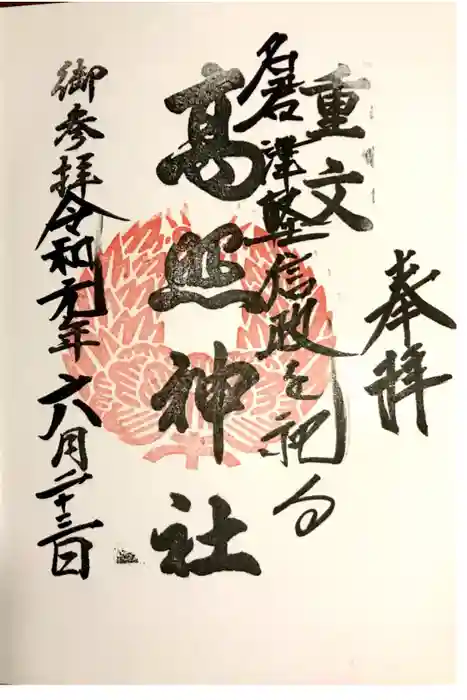 奉拝
重文
名君津軽信政を祀る
高照神社
御参拝令和元年六八月二十三日